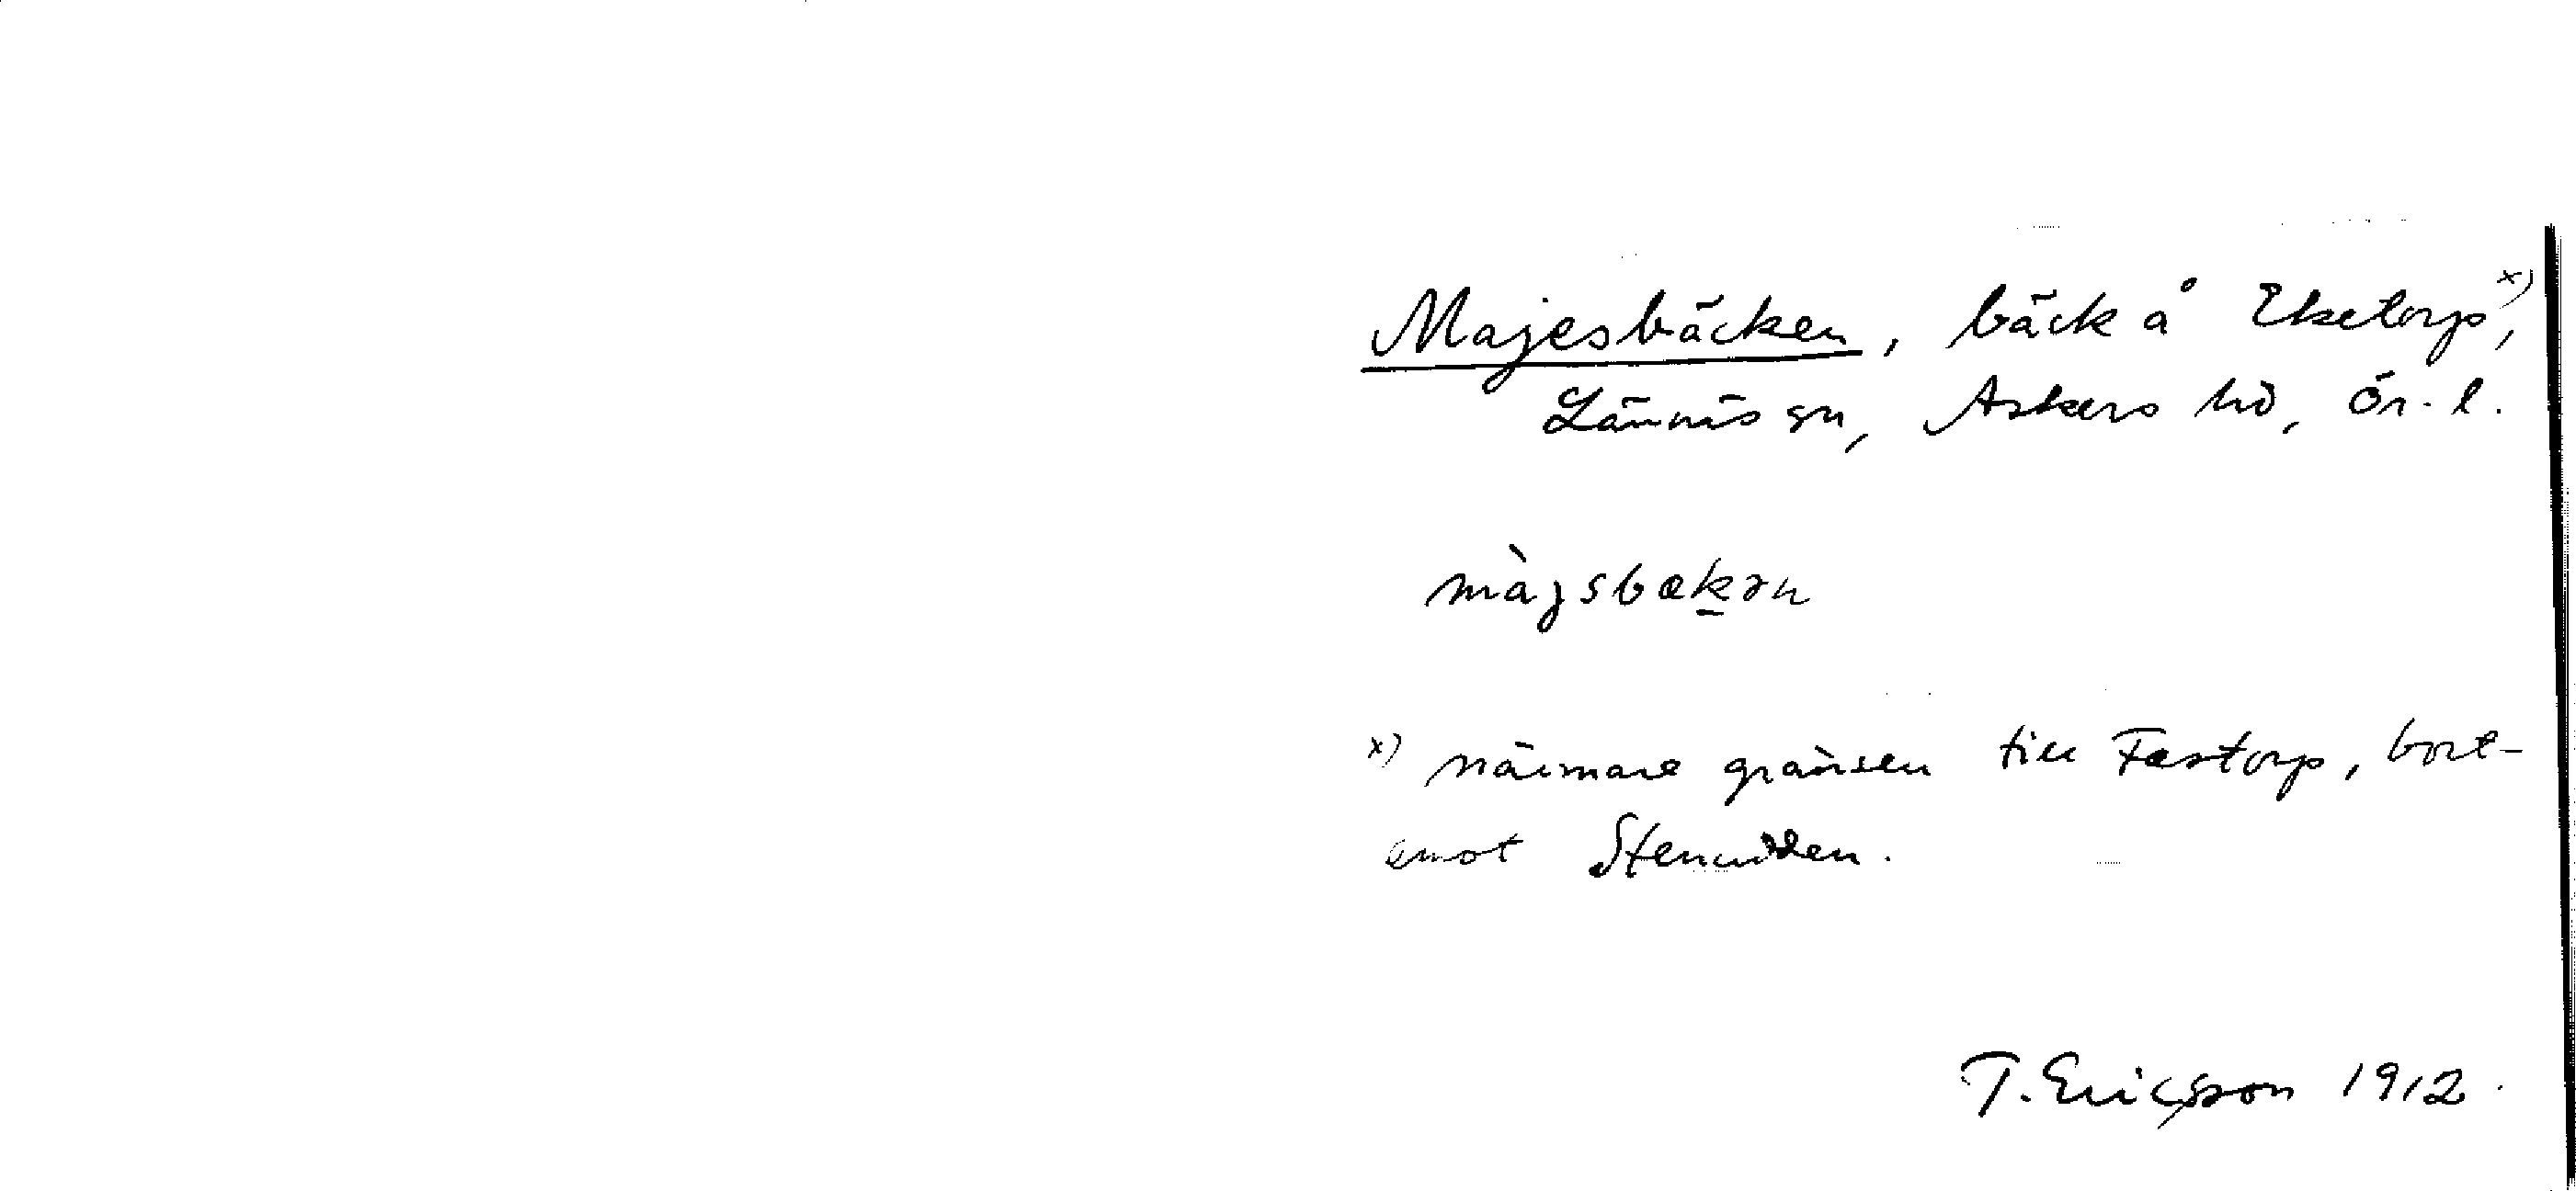 Majesbäcken, bäck å Eketorp x),
Lännäs sn, Askers hd, Ör. l.
màjsbækən
x) närmare gränsen till Fastorp, bort-
emot Stenudden.
T. Ericsson 1912.